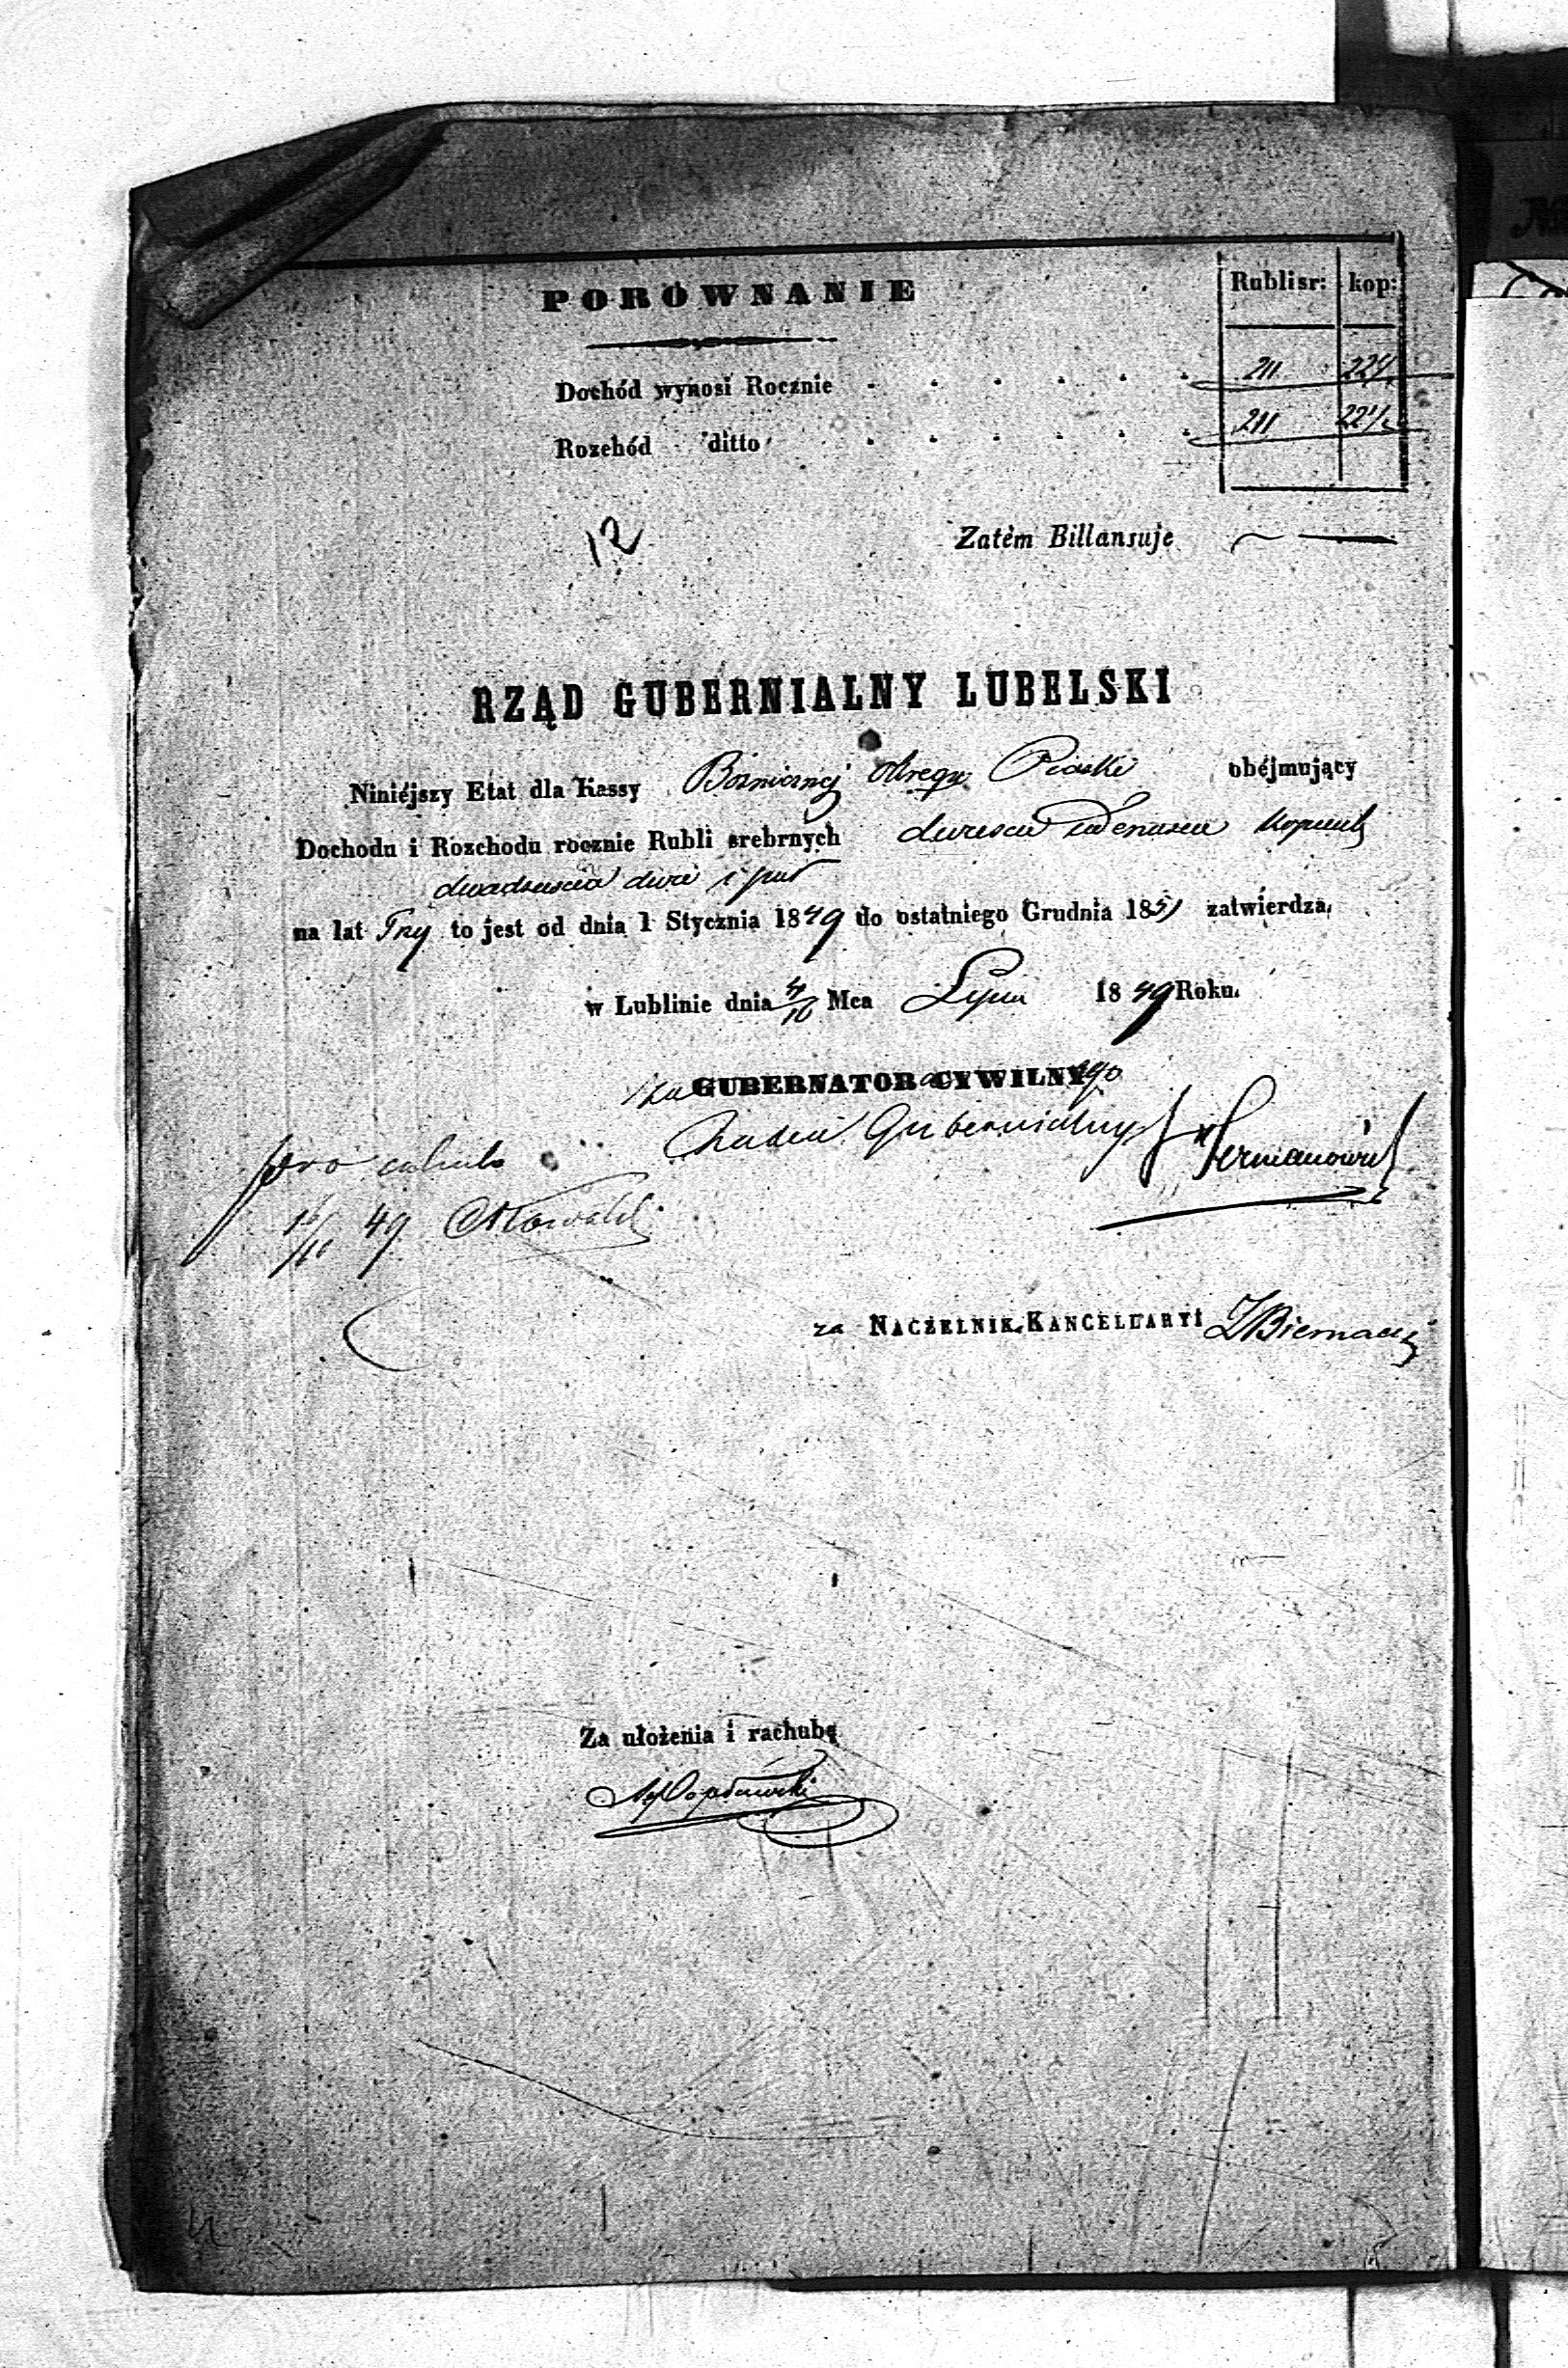 PORÓWNANIE
Rubli sr: kop:
Dochód wynosi Rocznie 211 22½
Rozchód ditto 211 22½
12
Zatèm Billansuje
RZĄD GUBERNIALNY LUBELSKI
Niniéjszy Etat dla Kassy Bożnicznej okręgu Piaski obéjmujący
Dochodu i Rozchodu rocznie Rubli srebrnych dwieście iedenascie kopiiek
dwadzieścia dwie i puł
na lat Trzy to jest od dnia 1 Stycznia 1849 do ostatniego Grudnia 1851 zatwierdza.
w Lublinie dnia 4/16 Mca Lipca 1849 Roku.
za GUBERNATORa CYWILNego
Radca Gubernialny Hermanowicz
pro calculo
49
za NACZELNIKa KANCELLARYI Biernacki
Za ułożenia i rachubę